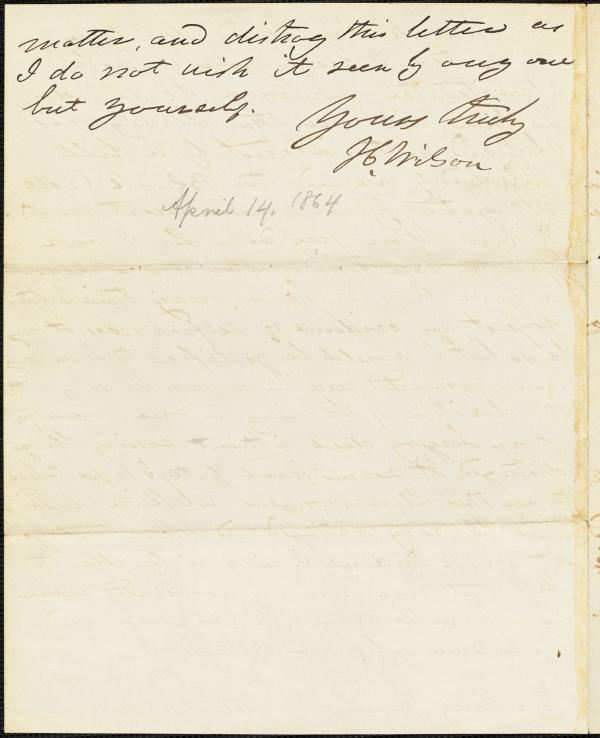 matter, and distroy this letter as
I do not wish it seen by any one
but yourself.
Yours truly
H C Wilson
April 14. 1864